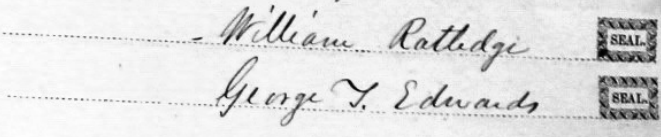 William Ratledge SEAL.
George T. Edwards SEAL.